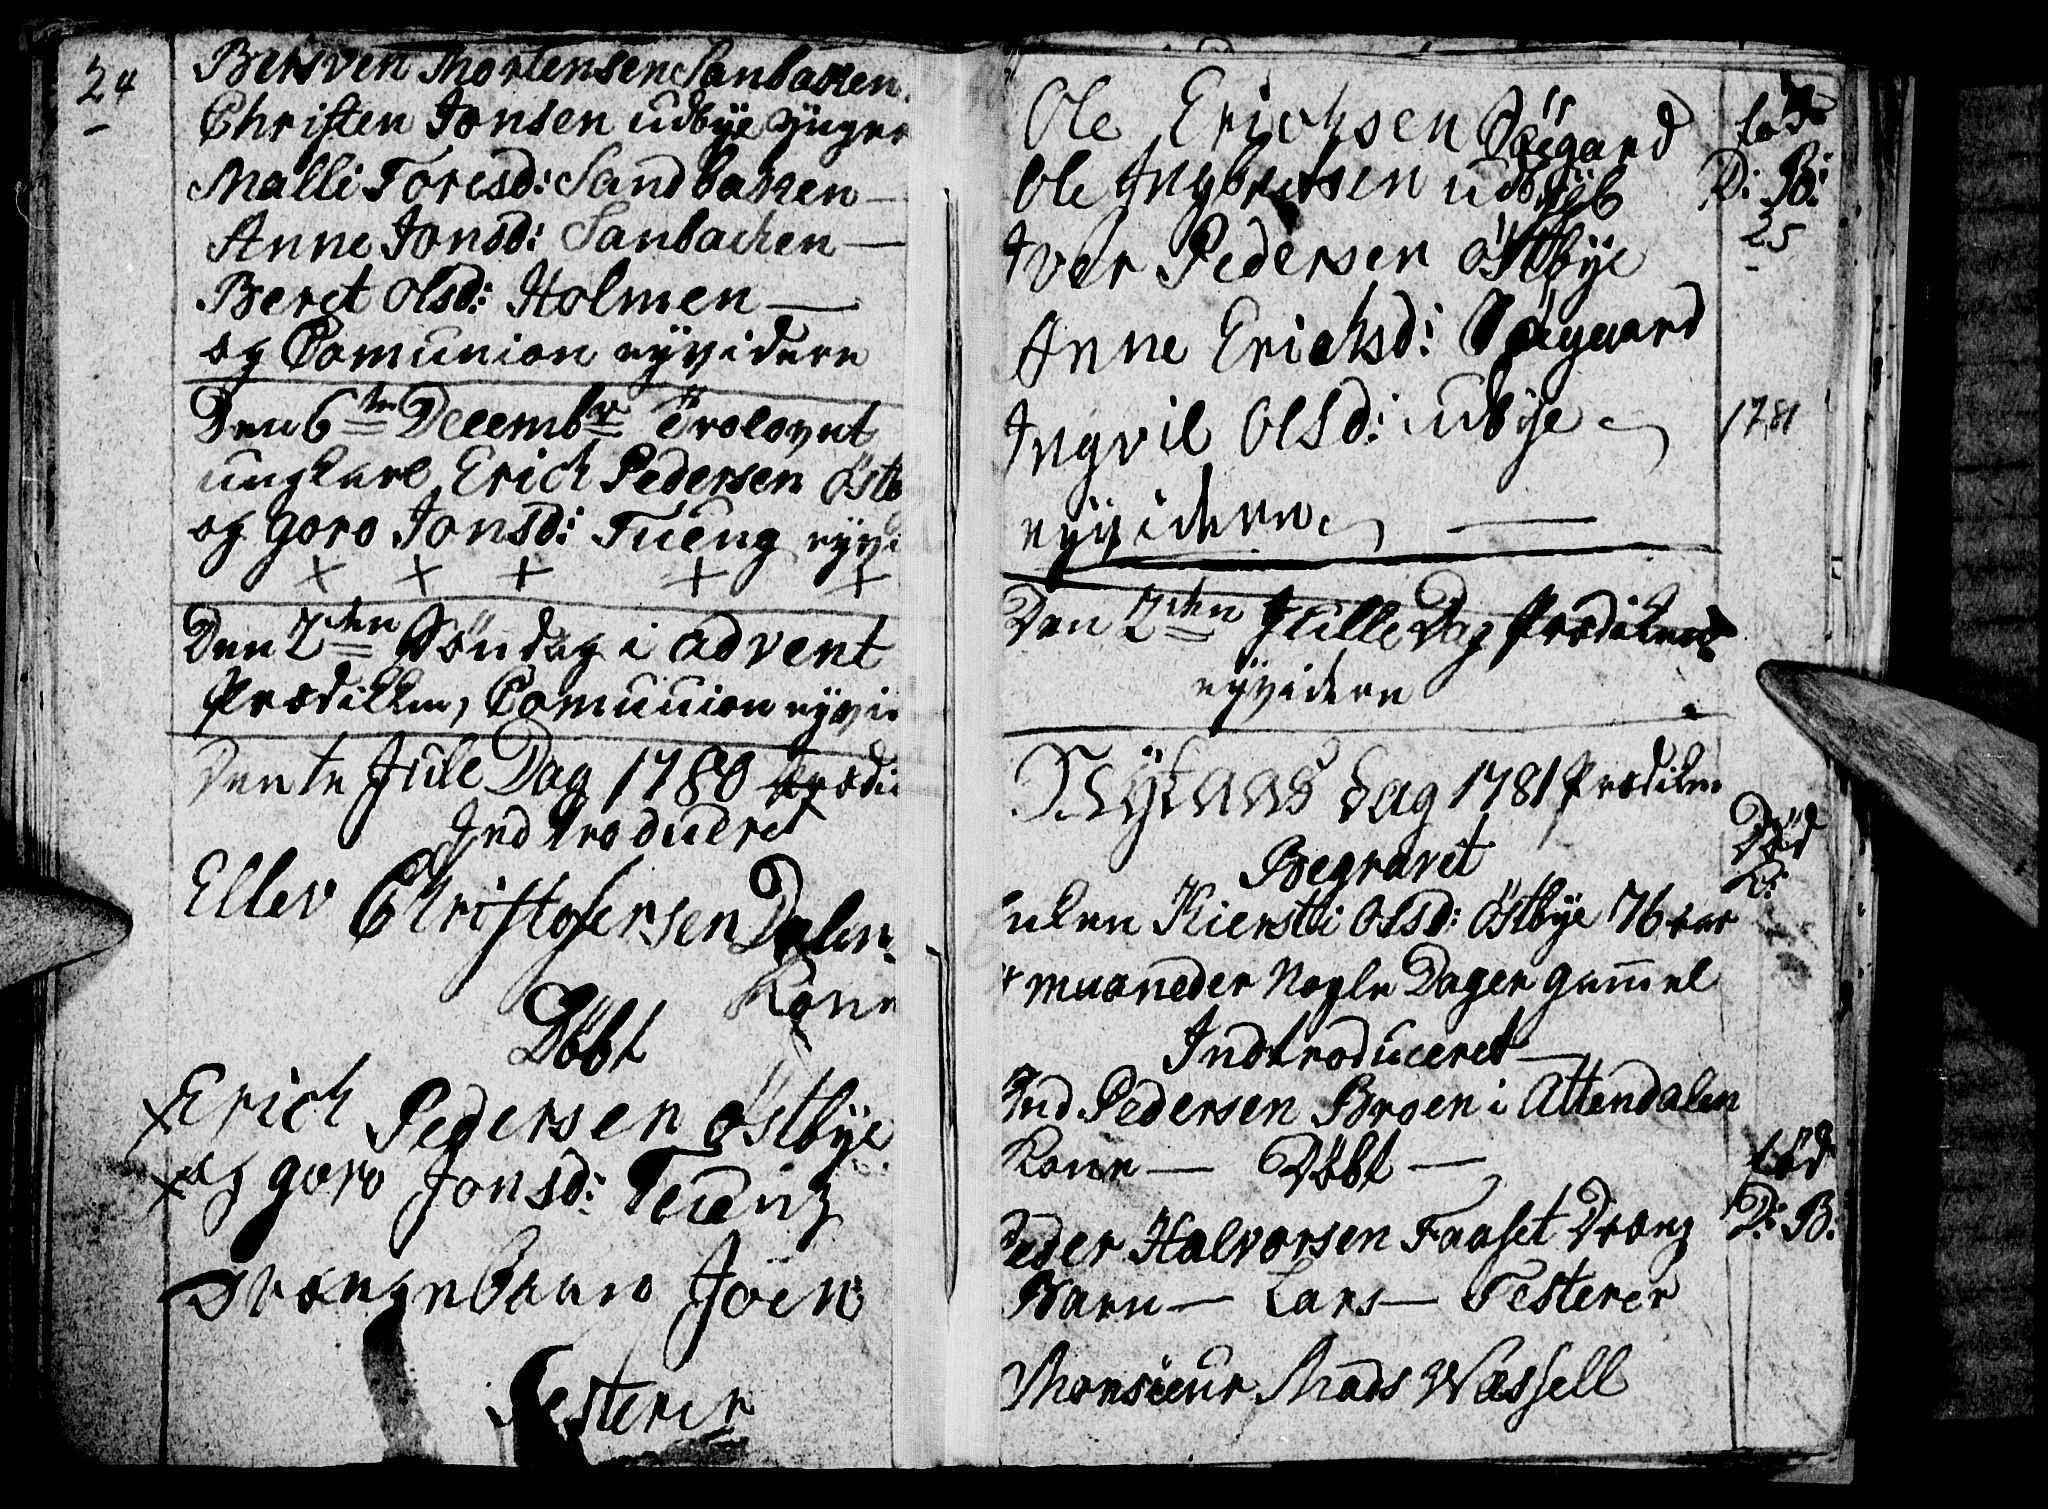 24
Bersven Mortensen Sanbakken.
Christen Jonsen udbÿe ÿnger
Malli Toresd: Sandbakken —
Anne Jonsd: Sanbachen —
Beret Olsd: Holmen —
og Comunion eÿvidere
Den 6te Decembr Trolovet
ungkarl Erich Pedersen Östb
og goro Jonsd: Tueng eÿvi
x x x x x
Den 2den Söndag i advent
Prædikken, Comunion eÿvi
Den 1te Jule Dag 1780 Prædi
Indtroduceret
Ellev Christofersen Dalen
Kone
Döbt
x Erich Pedersen östbÿe
x og goro Jonsd: Tueng
Drængebarn Joen
Testerer
Ole Erichsen Öÿgard
Ole Ingbretsen udbÿe
Iver Pedersen östbÿe
Anne Erichsd: Öÿgaard
Ingvil Olsd: udbÿe
eÿvidere —
D: B:
25
1781
Den 2den Julle Dag Prædiken
eÿvidere
Nÿtaars dag 1781 Prædiken
Begravet
Kiersti Olsd: östbÿe 76 aar
maaneder Nogle Dager gammel
Död
D:
Indtroduceret —
Pedersen Broen i Attendalen
Kone — Döbt —
eder Halvorsen Faaset Dræng
Barn — Lars — Testerer
Monsieur Mads Wessell
föd
D: B: